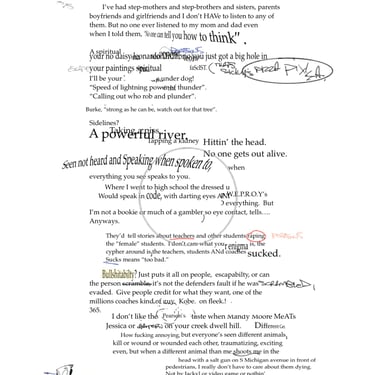 I've had step-mothers and step-brothers and sisters, parents
boyfriends and girlfriends and I don't HAVe to listen to any of
them. But no one ever listened to my mom and dad even
when I told them, "No one can tell you how to think".
A spiritual
your no daisy
you just got a big hole in
your paintings spiritual
I'll be your under dog!
"Speed of lightning powerful thunder".
"Calling out who rob and plunder".
Burke, "strong as he can be, watch out for that tree".
Sidelines?
Taking a piss
A powerful river,
Tapping a kidney Hittin' the head.
No one gets out alive.
Seen not heard and Speaking when spoken to,
when
everything you see speaks to you.
Where I went to high school the dressed u
Would speak in code, with darting eyes A.W.E.P.R.O.Y's
everything. But
I'm not a bookie or much of a gambler so eye contact, tells....
Anyways.
They'd tell stories about teachers and other students raping
the "female" students. I don't care what you is, the
r enigma
cypher around is the teachers, students AND coaches sucked.
Sucks means "too bad."
Bullshitabity? Just puts it all on people, escapabilty, or can
the person scramble, it's not the defenders fault if he was SCRAMBLED,
evaded. Give people credit for what they want, one of the
millions coaches kind of say, Kobe. on fleek.!
365.
I don't like the taste when MANdy MOORe MeATs
Jessica or on your creek dwell hill. Difference
How fucking annoying, but everyone's seen different animals,
kill or wound or wounded each other, traumatizing, exciting
even, but when a different animal than me shoots me in the
head with a salt gun on S Michigan avenue in front of
pedestrians, I really don't have to care about them dying.
Not by Jacky! or video game or nothin'